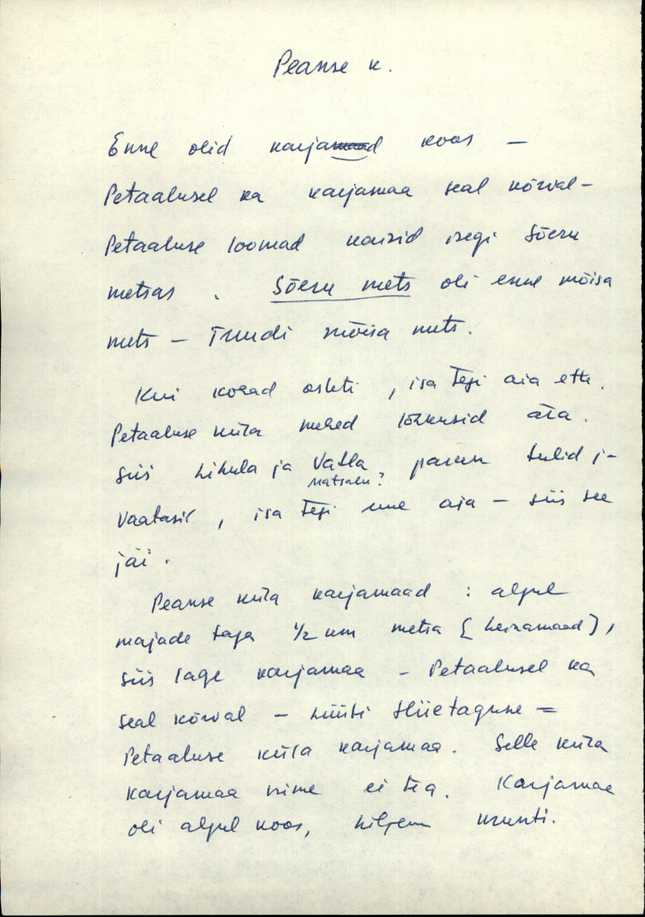 Peanse k.
Enne olid karjamaad koos —
Petaalusel ka karjamaa seal kõrval —
Petaaluse loomad käisid isegi Sõeru
metsas. Sõeru mets oli enne mõisa
mets — Tuudi mõisa mets.
Kui kohad osteti, isa tegi aia ette.
Petaaluse küla mehed lõhkusid ära.
Siis Lihula ja Vatla parun tulid j-
Matsalu?
vaatasid, isa tegi uue aia — siis see
jäi.
Peanse küla karjamaad : algul
majade taga 1/2 km metsa (heinamaad),
siis lage karjamaa — Petaalusel ka
seal kõrval — hüüti Hiietaguse =
Petaaluse küla karjamaa. Selle küla
karjamaa nime ei tea. Karjamaa
oli algul koos, hiljem krunti.